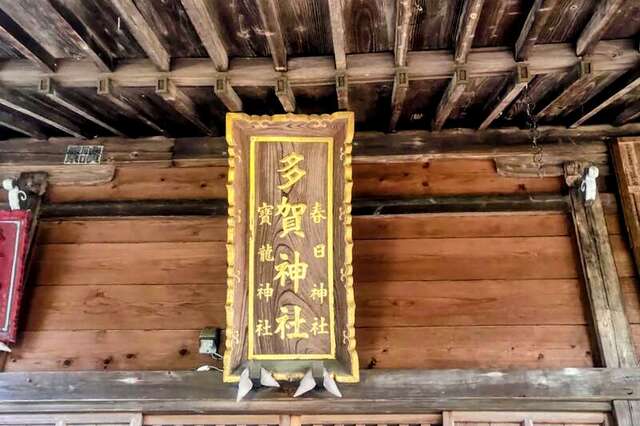 春日神社
多賀神社
寳龍神社